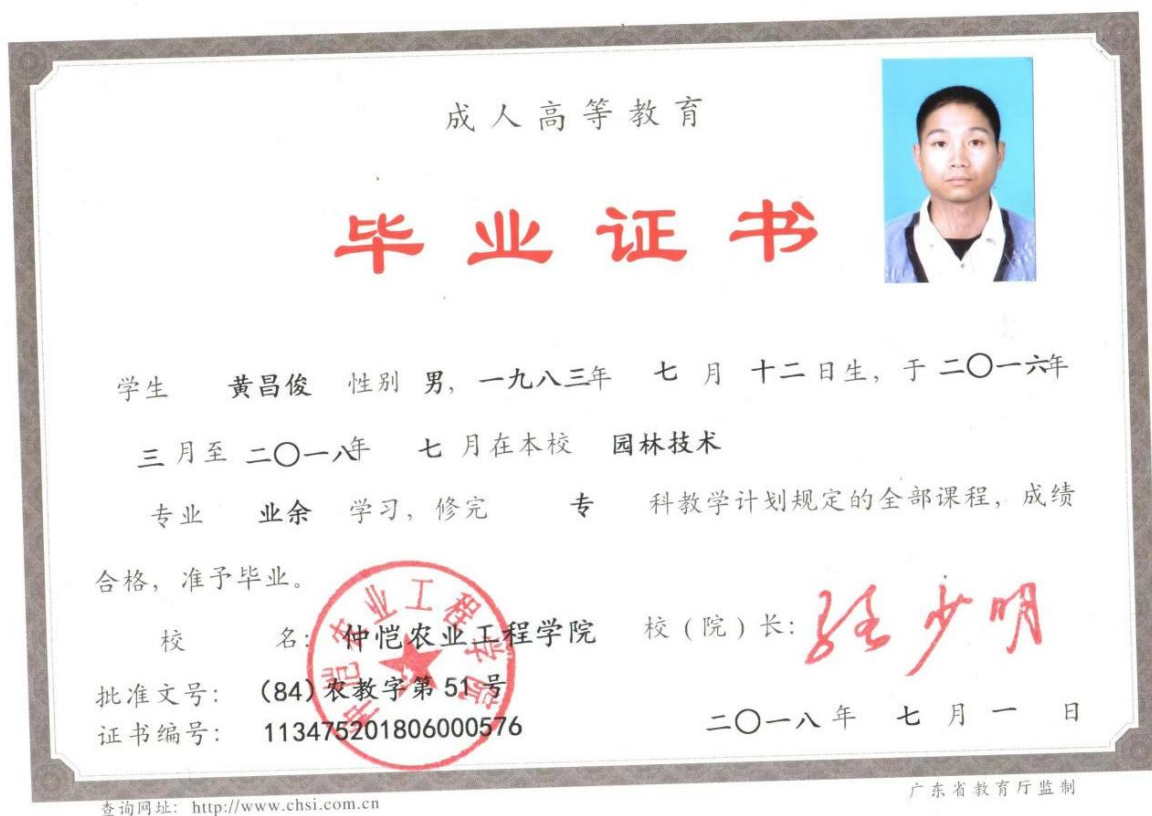 成人高等教育
毕业证书
学生 黄昌俊 性别 男，一九八三年 七 月 十二 日生，于 二〇一六年
三 月至 二〇一八年 七 月在本校 园林技术
专业 业余 学习，修完 专 科教学计划规定的全部课程，成绩
合格，准予毕业。
校 名：仲恺农业工程学院 校（院）长：
仲恺农业工程学院
批准文号：（84）农教字第 51 号
证书编号：113475201806000576
二〇一八 年 七 月 一 日
查询网址：http://www.chsi.com.cn
广东省教育厅监制